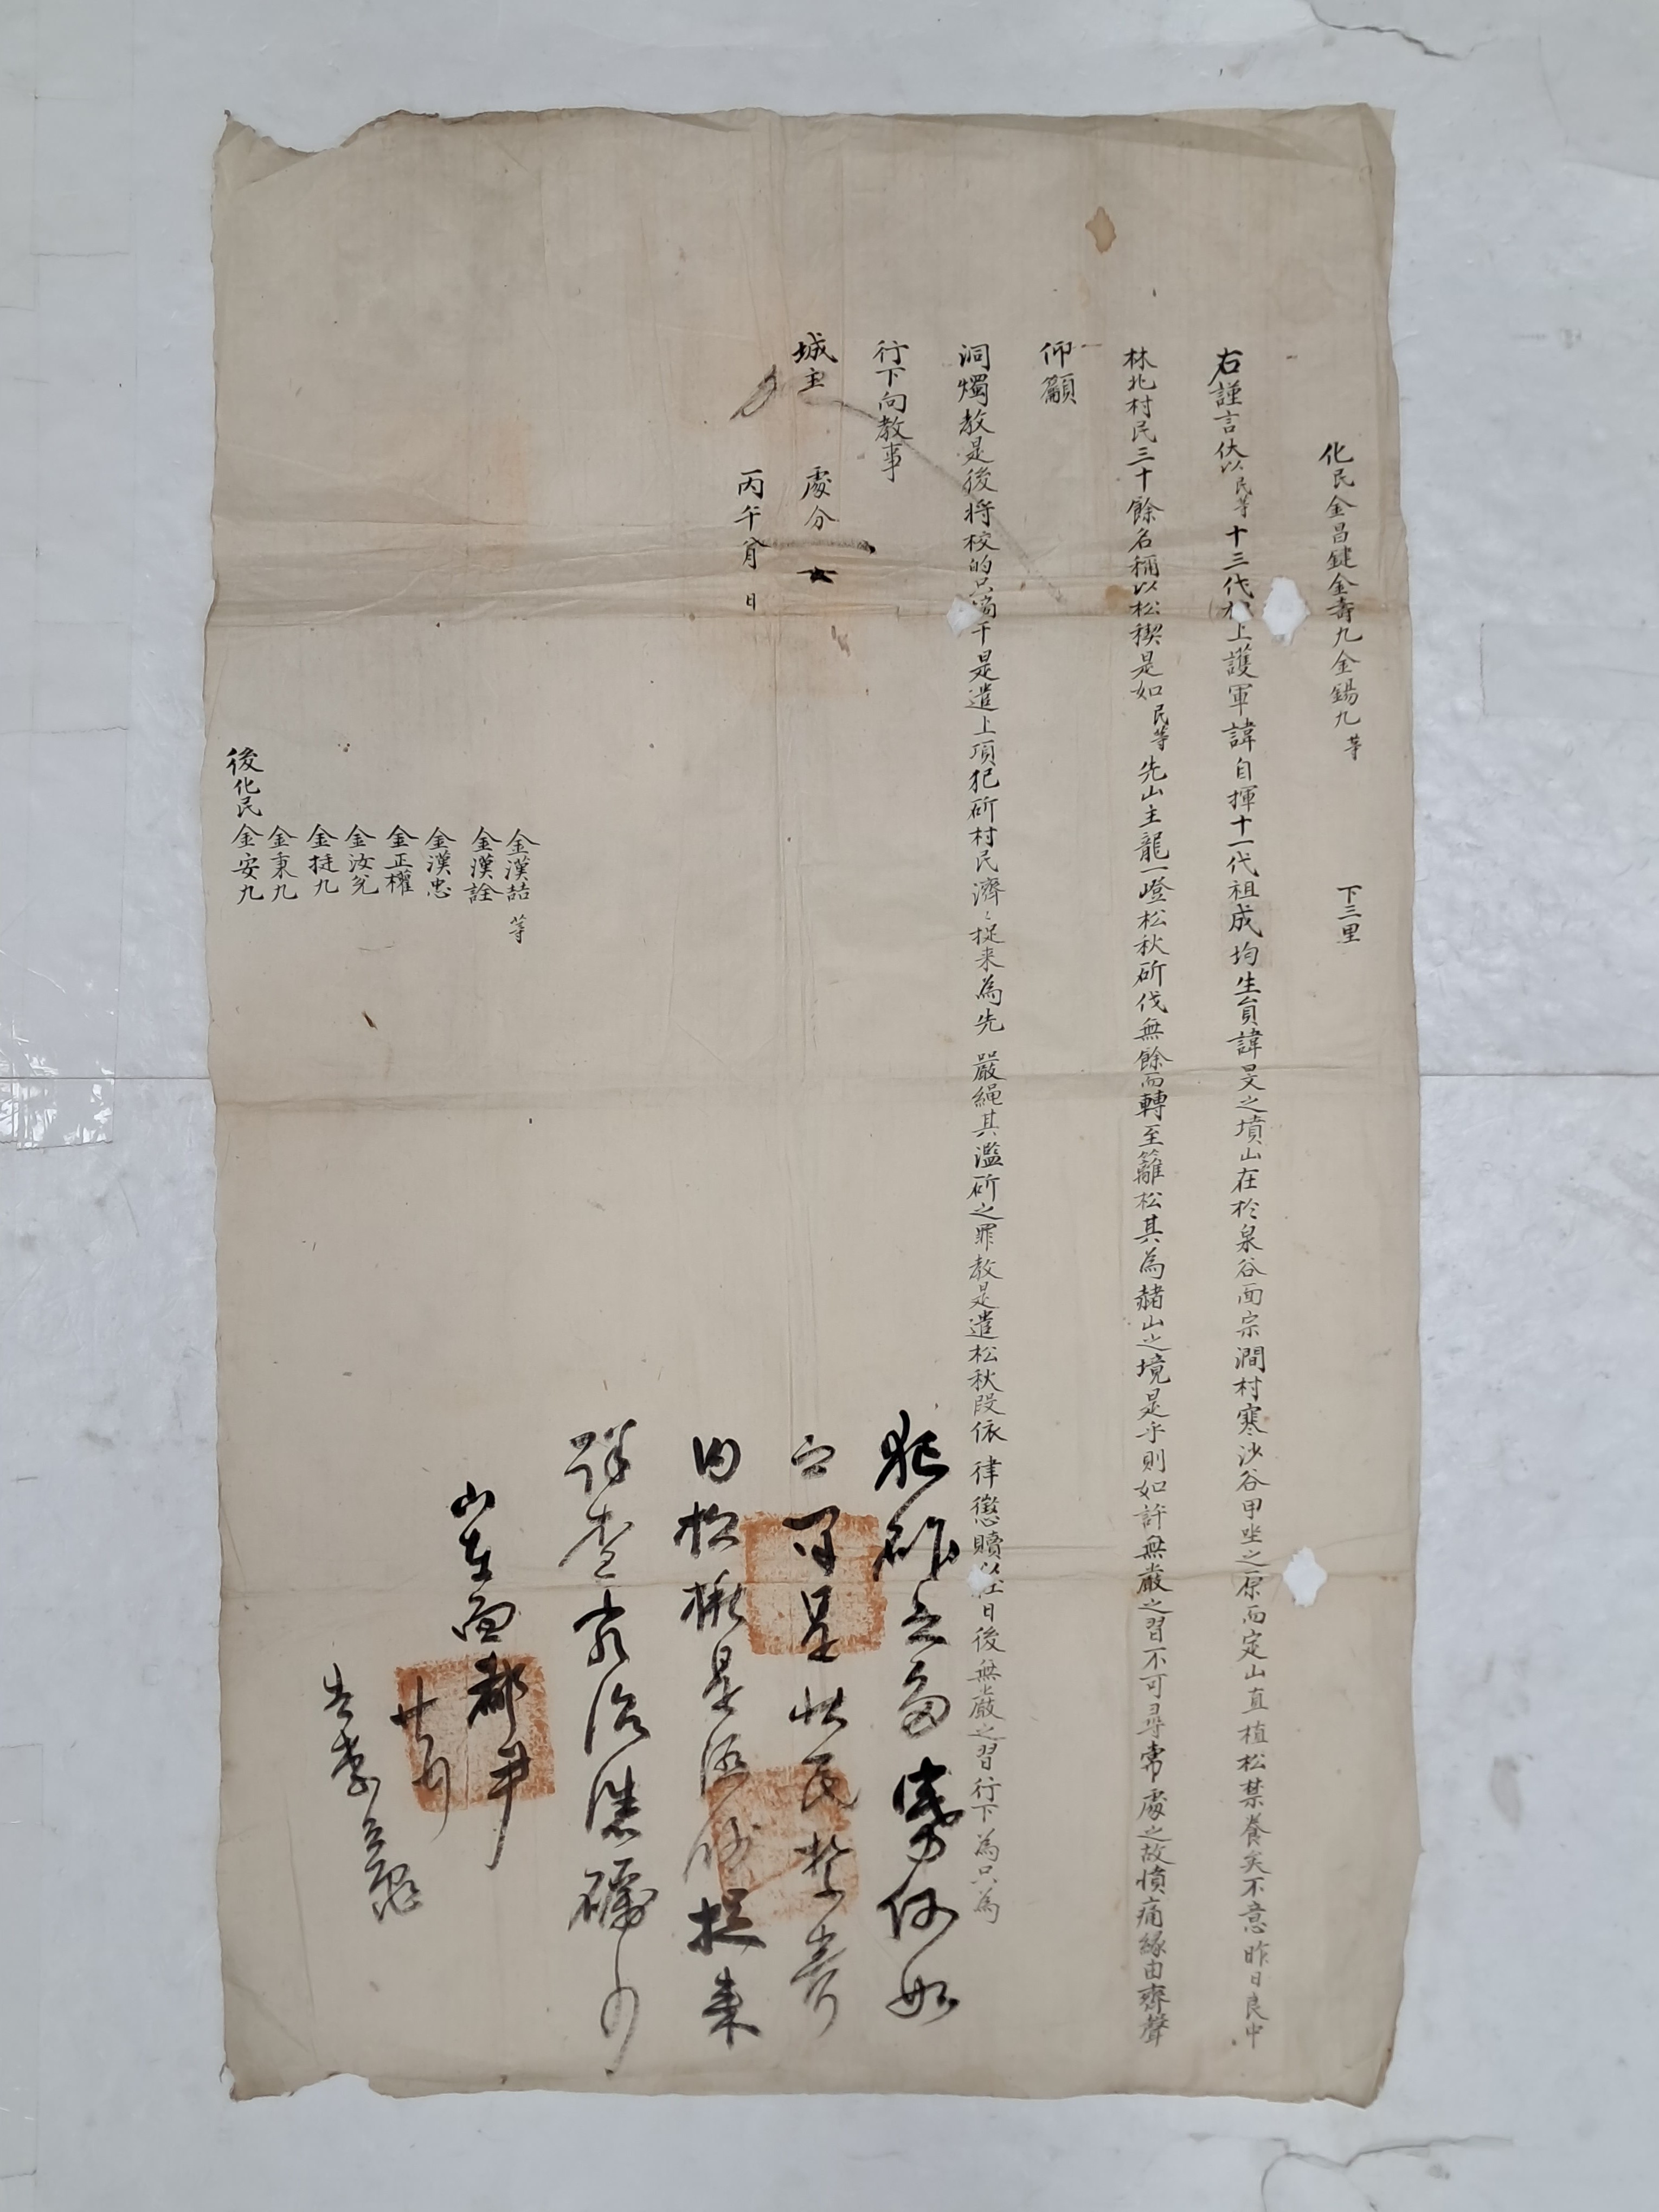 化民金昌鍵金壽九金錫九等 下三里
右謹言伏以民等十三代祖上護軍諱自揮十一代祖成均生員諱旻文之墳山在於泉谷面宗澗村寒沙谷甲坐之原而定山直植松禁養矣不意昨日良中
林北村民三十餘名稱以松稧是如民等先山主龍一嶝松秋斫伐無餘而轉至籬松其為赭山之境是乎則如許無嚴之習不可尋常處之故憤痛緣由齊聲
仰籲
洞燭教是後將校的只 干是遣上項犯斫村民濟〻捉来為先 嚴繩其濫斫之罪教是遣松秋段依 律懲贖以杜日後無嚴之習行下為只為
行下向教事
城主 處分
丙午 月 日
金漢喆等
金漢詮
金漢忠
金正權
金汝
金挺九
金秉九
後化民金安九
犯斫之 何如
是 民
內松楸是 捉来
詳查 治 向
山在面都尹
廿
告李